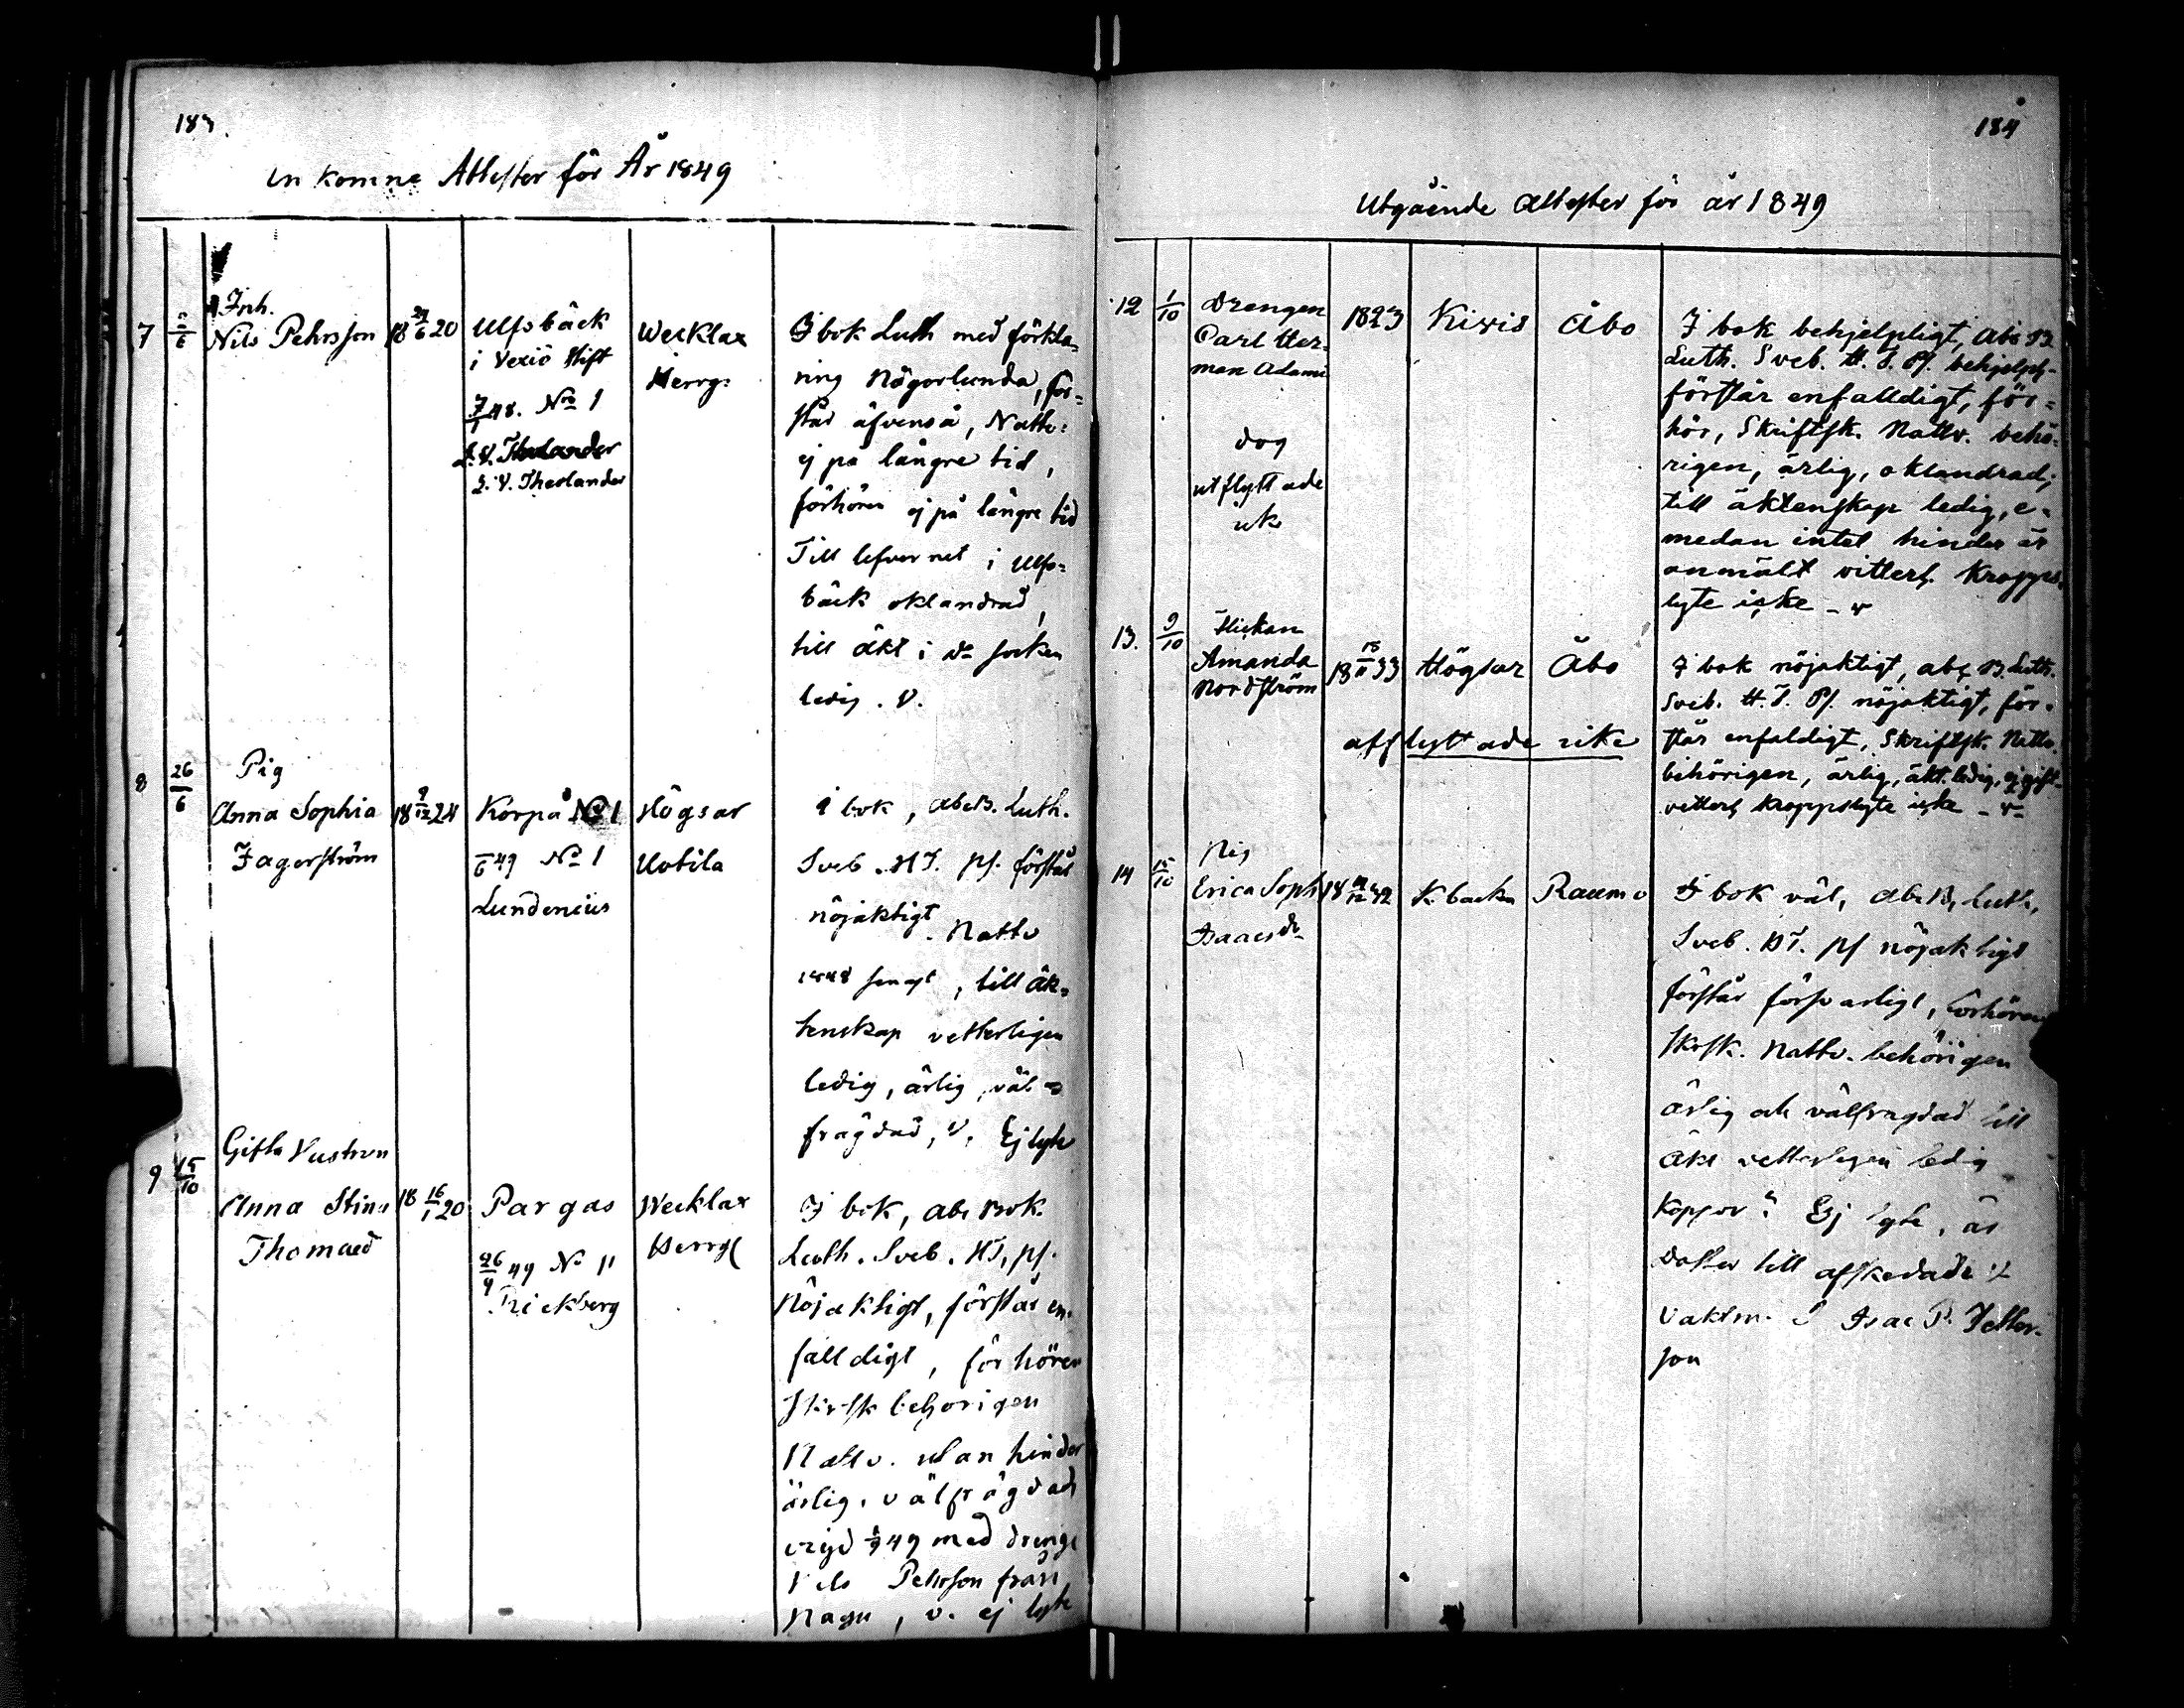 183.
In komne Attester för År 1849
7 2/6 Inh.
Nils Pehrsson 18 29/6 20
Ulfsbäck
i Vexiö Stift
7/1 48. No 1
J. V. Thelander
Wecklax
Herrg:
I bok Luth med förkla=
ring Någorlunda, för=
står äfvenså, Nattv:
ej på längre tid,
förhören ej på längre tid
Till lefvernet i Ulfs=
bäck oklandrad,
till äkt i do socken
ledig. V.
8 26/6 Pig
Anna Sophia 18 9/12 24
Jagerström
Korpå No 1
6 49 No 1
Lundenius
Högsar
Uotila
i bok, abcB. Luth.
Sveb. HT. ps. förstår
nöjaktigt. Nattv
1848 senast, till äk=
tenskap vetterligen
ledig, ärlig, väl=
frägdad, V. Ej lyte
9 15/10 Gifta Hustrun
Anna Stina 18 16/1 20
Thomasd
Pargas
26/9 49 No 11
Rickberg
Wecklax
Herrg
I bok, abc Bok.
Luth. Sveb. HT, ps.
Nöjaktigt, förstår en=
falldigt, för hören
Skrsk behörigen
Nattv. utan hinder
ärlig. välfrägdad
vigd 49 med drenge
Nils Pehrson från
Nagu, v. ej lyte
184
Utgående attester för år 1849
12 1/10 Drengen
Carl Her=
man Adami
dog
utflyttade
icke
1823 Kiris Åbo
I bok behjelpligt, Abc B
Luth. Sveb. H. T. Ps. behjelpl-
förstår enfalldigt, för=
hör, Skriftsk. Nattv. behö-
rigen, ärlig, oklandrad,
till äktenskap ledig, e-
medan intet hinder är
anmält vitterl. Kropps
lyte icke - v
13. 9/10 Flickan
Amanda
Nordström
18 33 Högsar Åbo
afflyttade icke
I bok nöjaktigt, abc B. Luth.
Sveb. H. T. Ps. nöjaktigt, för-
står enfaldigt, Skriftsk. Nattv.
behörigen, ärlig, äkt. ledig, ej gift-
vetterl. kroppslyte icke - v-
14 15/10 Pig
Erica Soph
Isaacsdr
K backa Raumo
I bok väl, abcB, Luth,
Sveb. HT. ps nöjaktigt
förstår försvarligt, förhören
skrsk. Nattv. behörigen
ärlig och välfrägdad till
äkt vetterligen ledig
Koppor? Ej lyte, är
dotter till afskedade
Vaktm. Isac P. Petter-
son